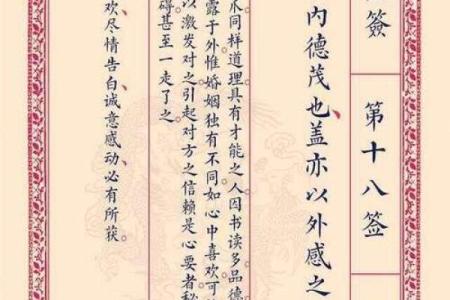 簽
第十八签
内德茂也盖亦以外感之
爪同样道理具有才能之人因书读多品德
露于外惟婚姻独有不同如心中喜欢可
以激发对之引起对方之信赖是心要者
碍甚至一走了之
欢尽情告白诚意感动必有所获